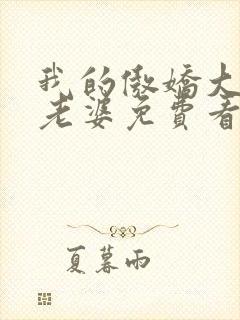 我的傲娇大
老婆免費看
夏暮雨